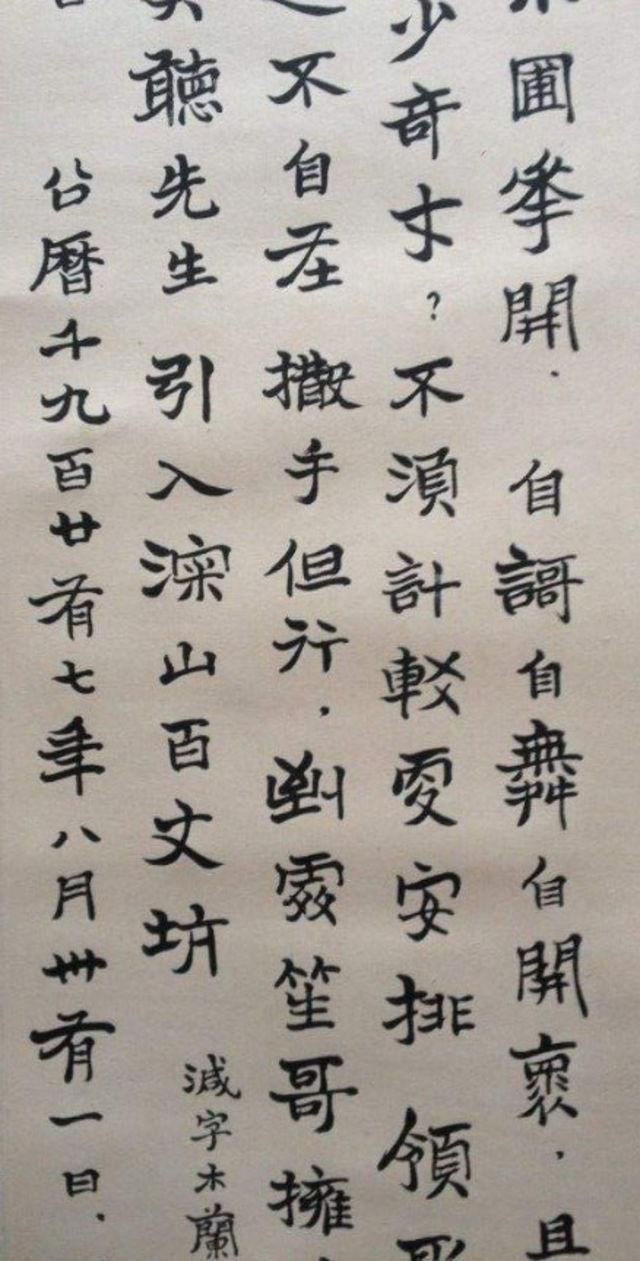 圃𠌶開. 自謌自舞自開褱. 且
少奇才?不須計較更安排 領
不自在 撒手但行. 到處笙哥擁
聽先生 引入深山百丈坑 減字木蘭
公曆千九百廿有七年八月卅有一日.